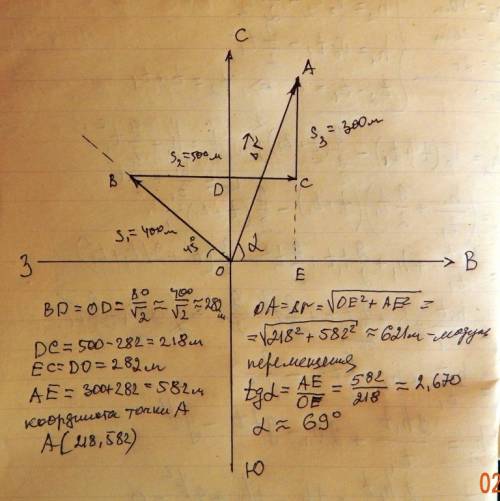 С
A
S₃ = 300м
Δr
S₂ = 500м
B
D
C
S₁ = 400м
45°
α
З
O
E
В
BD = OD = BO/√2 ≈ 400/√2 ≈ 282 м
DC = 500 - 282 = 218м
EC = DO = 282м
AE = 300 + 282 = 582м
координата точки А
A(218, 582)
OA = Δr = √OE² + AE² =
= √218² + 582² ≈ 621м - модуль
перемещения
tgα = AE/OE = 582/218 ≈ 2,670
α ≈ 69°
Ю
02